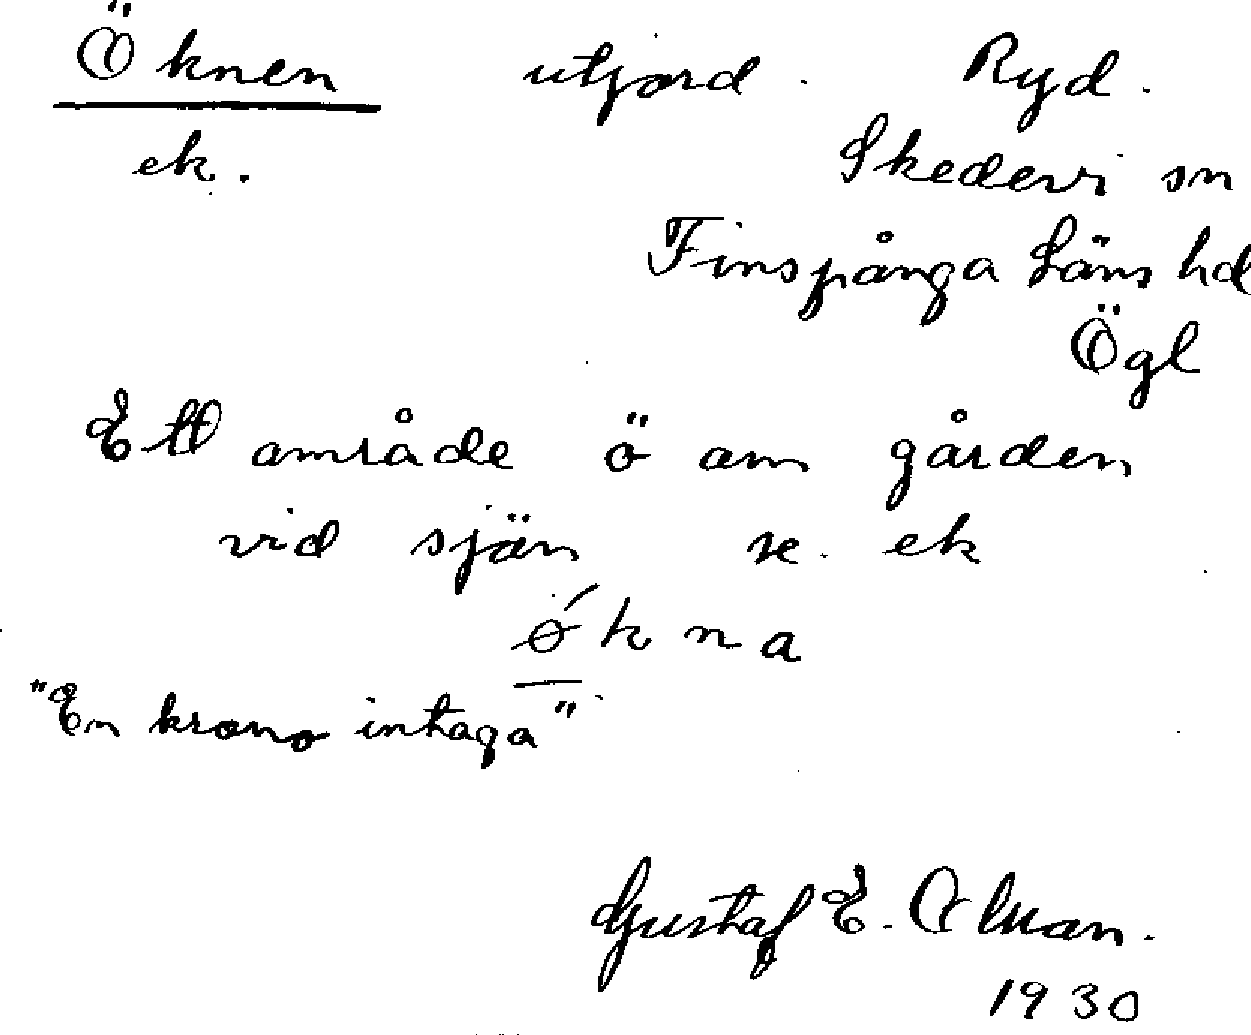 Öknen utjord. Ryd.
ek. Skedevi sn
Finspånga Läns hd
Ögl
Ett område ö om gården
vid sjön se. ek
ǿkna
"En krono intaga"
Gustaf E. Olman.
1930